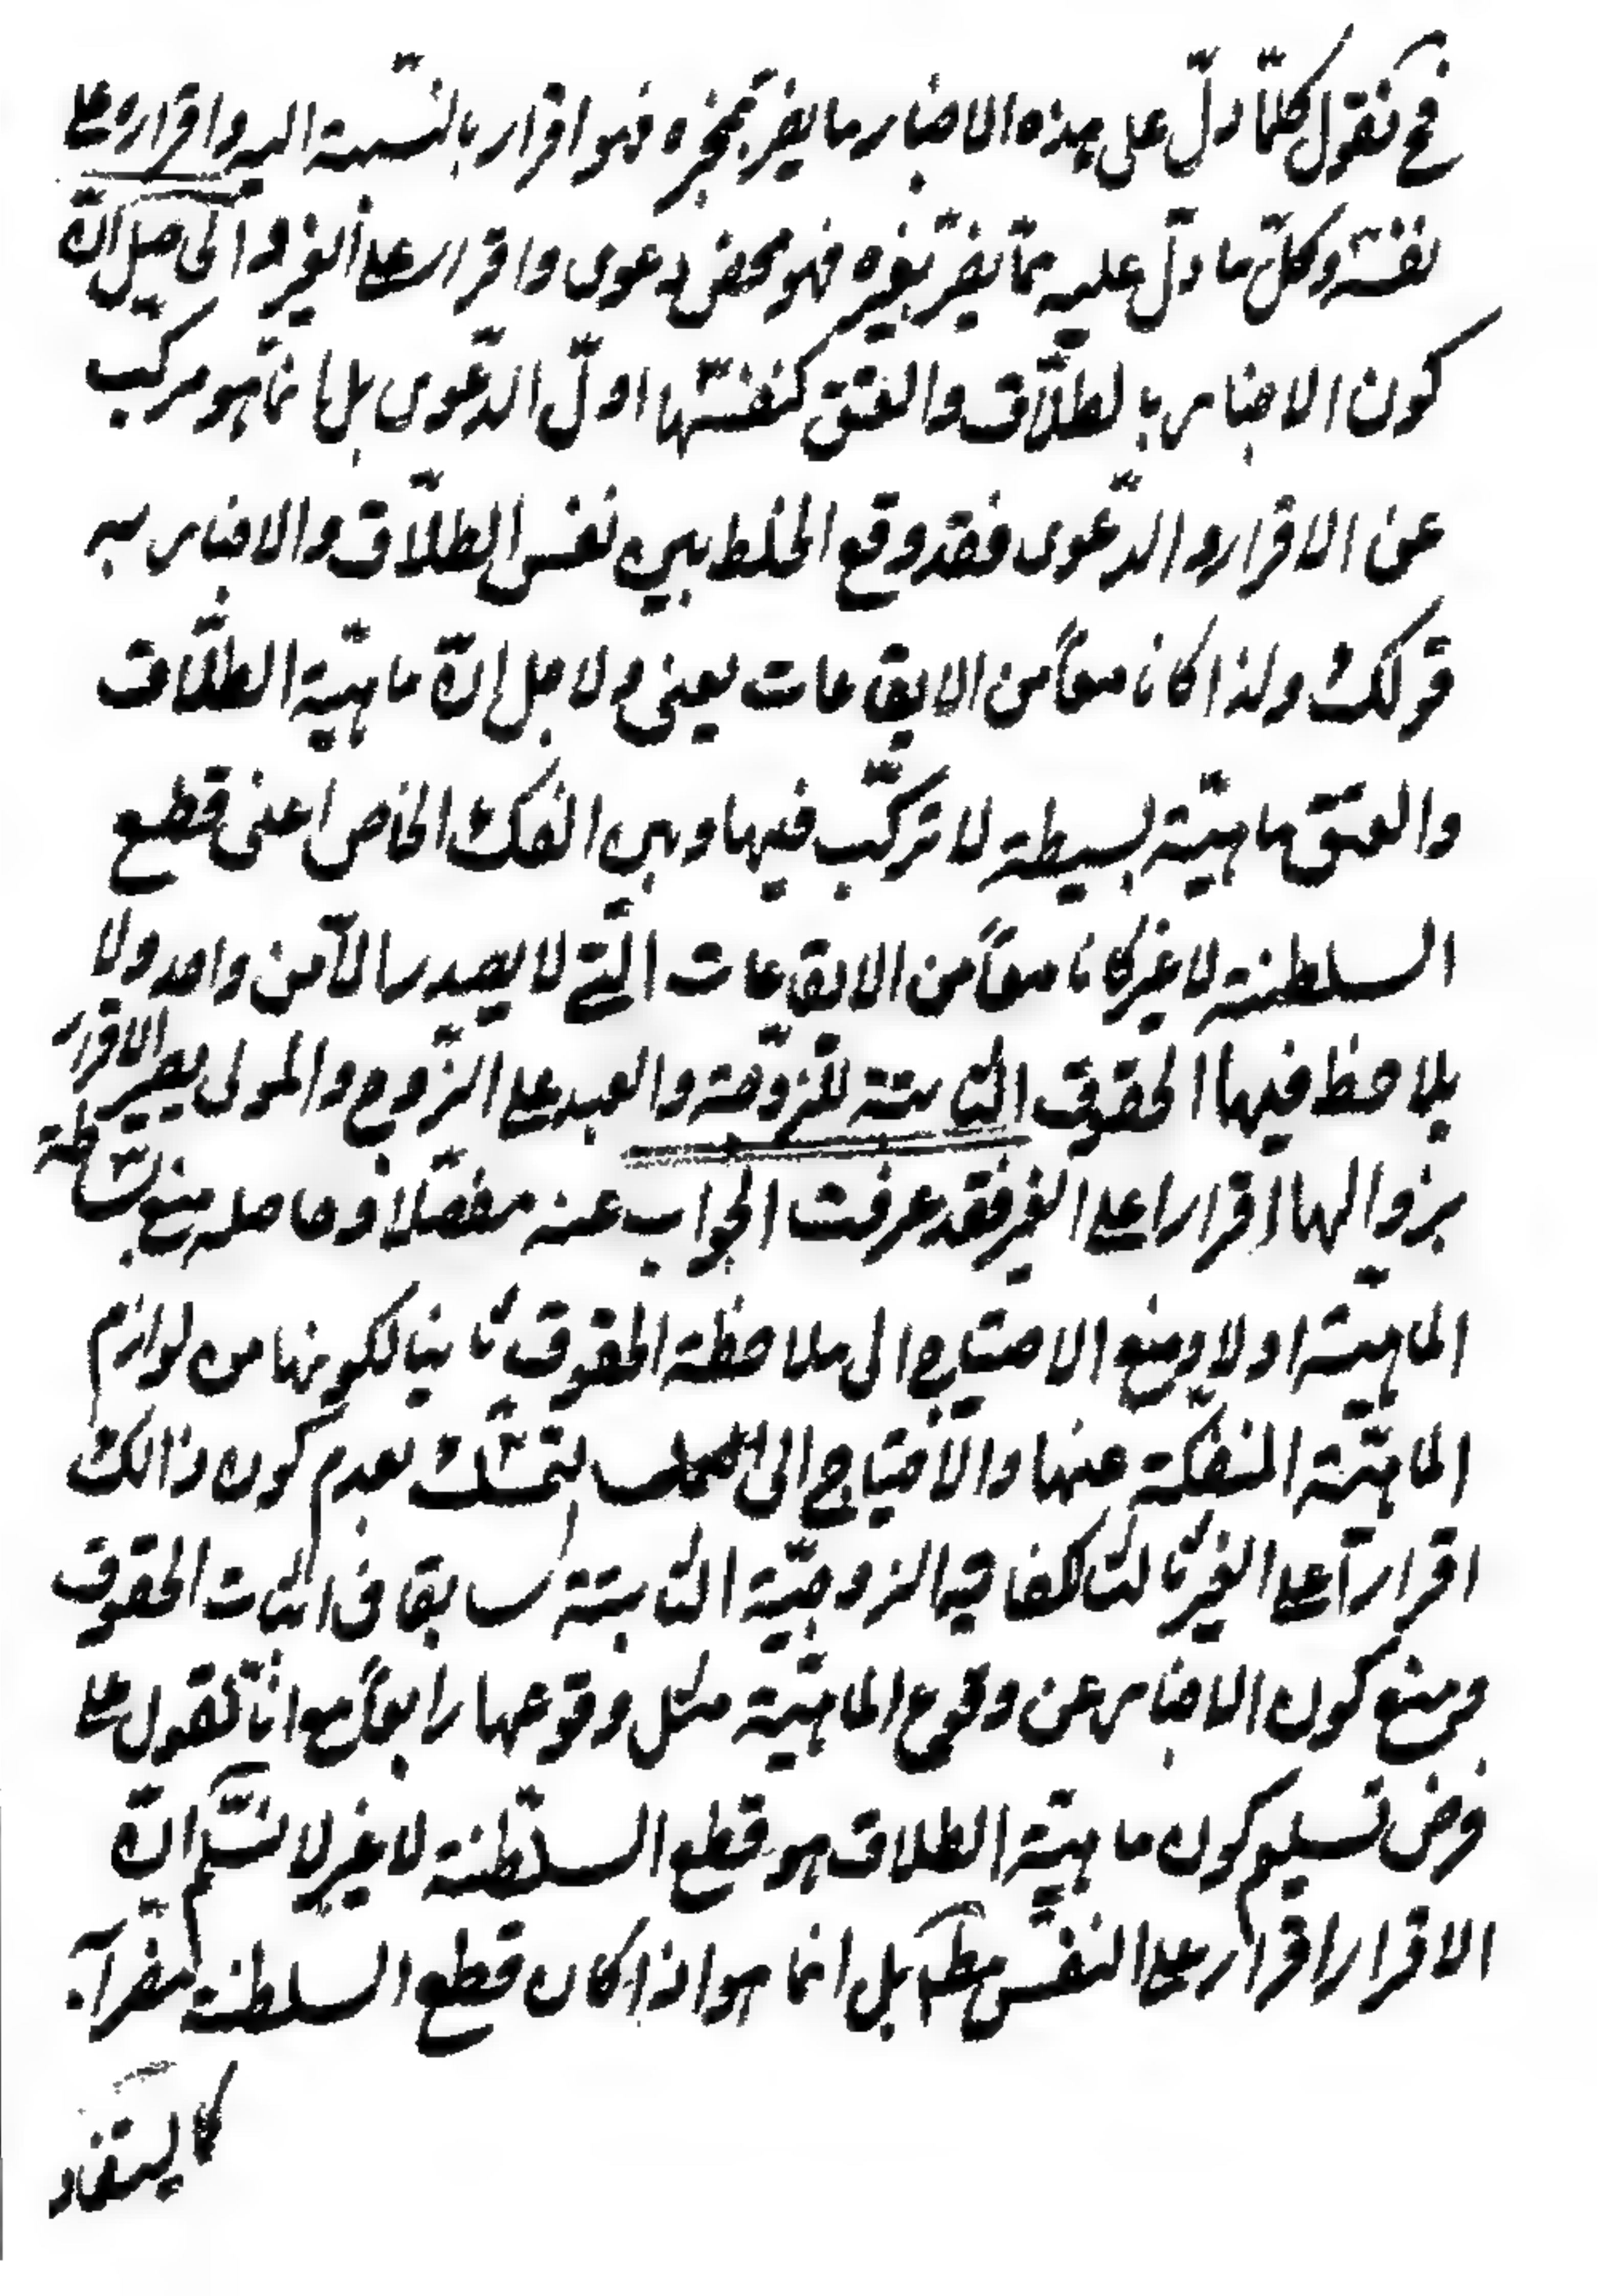 فح نقول كلّما دلّ على هذه الاخبار ما يضر بمخبره فهو اقرار بالنّسبة اليه واقراره على
نفسه وكلّ ما دلّ عليه ممّا يضرّ بغيره فهو محض دعوى واقرار على الغير والحاصل انّ
كون الاخبار بالطلاق والعتق كنفسهما اوّل الدّعوى بل انّما هو مركّب
عن الاقرار والدّعوى فقد وقع الخلط بين نفس الطلاق والاخبار به
قولك ولذا كانا معاً من الايقاعات يعنى ولاجل انّ ماهيّة الطلاق
والعتق ماهيّة بسيطة لا تركّب فيها وهي الفك الخاص اعنى قطع
السلطنة لا غير كانا معاً من الايقاعات الّتي لا يصدر الّا من واحد ولا
يلاحظ فيها الحقوق الثابتة للزّوجة والعبد على الزّوج والمولى يصير الاقرار
بزوالها اقرارا على الغير فقد عرفت الجواب عنه مفصّلا وحاصله منع بساطة
الماهيّة اولا ومنع الاحتياج الى ملاحظة الحقوق ثانيا لكونها من لوازم
الماهيّة المنفكّة عنها والاحتياج الى التمسك بعدم كون ذالك
اقراراً على الغير ثالثا لكفاية الزوجيّة الثابتة سابقا فى اثبات الحقوق
ومنع كون الاخبار عن وقوع الماهيّة مثل وقوعها رابعاً مع انّا نقول على
فرض تسليم كون ماهيّة الطلاق هو قطع السلطنة لا غير لا نسلّم انّ
الاقرار اقرار على النفس مطـ بل انما هو اذا كان قطع السلطنة مضراً به
كا يستفاد